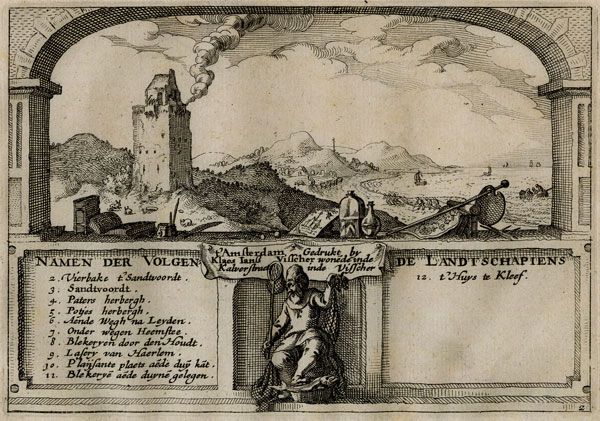 t'Amsterdam Gedrukt by
Klaes Ianß Visscher wonede inde
Kalverstraet inde Visscher
NAMEN DER VOLGEN
DE LANDTSCHAPIENS
2. Vierbake t'Sandtvoordt.
3. Sandtvoordt.
4. Paters herbergh.
5. Potjes herbergh.
6. Aende Wegh na Leyden.
7. Onder wegen Heemstee.
8. Blekeryen door den Houdt.
9. Lasery van Haerlem.
10. Plaisante plaets aẽde duyñ kãt.
11. Blekeryẽ aẽde duynẽ gelegen.
12. t'Huys te Kleef.
2